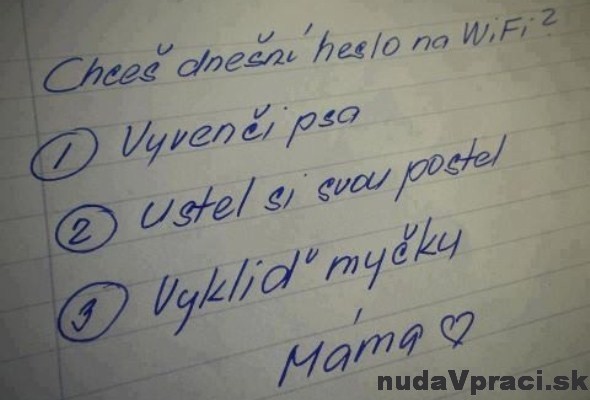 Chceš dnešní heslo na WiFi?
1 Vyvenči psa
2 Ustel si svou postel
3 Vykliď myčku
Máma ♡
nudaVpraci.sk